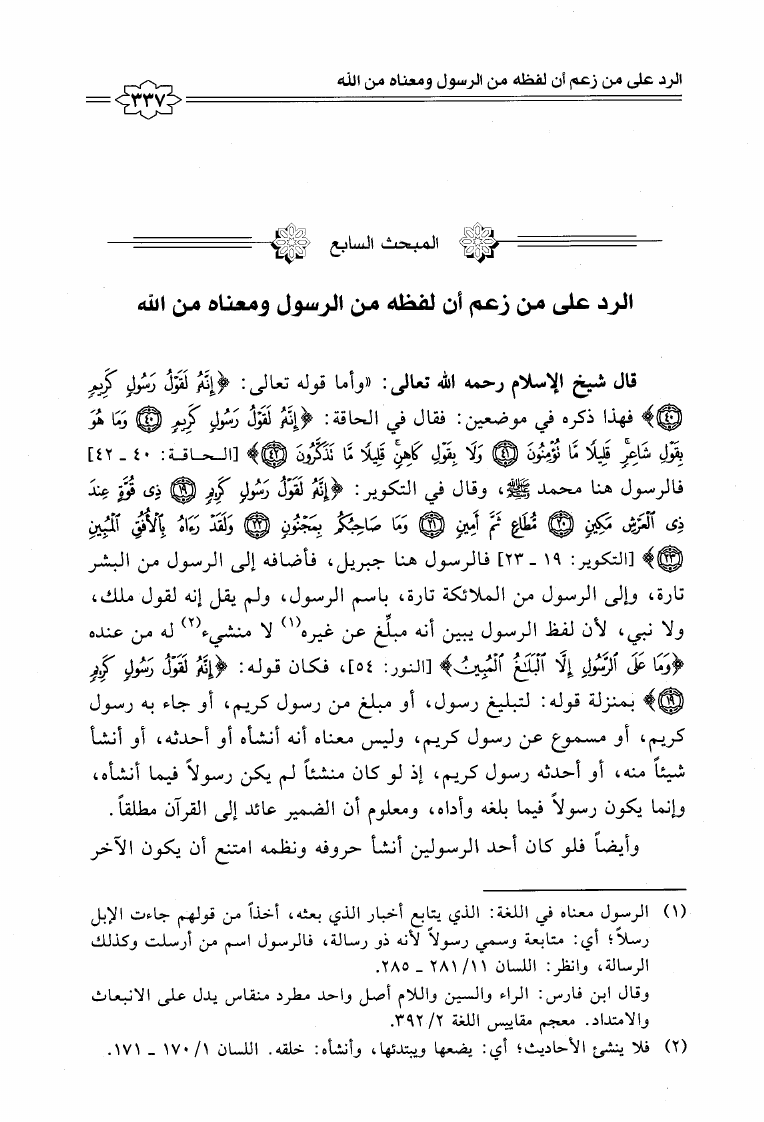 الرد على من زعم أن لفظه من الرسول ومعناه من الله
٣٣٧
المبحث السابع
الرد على من زعم أن لفظه من الرسول ومعناه من الله
قال شيخ الإسلام رحمه الله تعالى: «وأما قوله تعالى: ﴿إِنَّهُۥ لَقَوْلُ رَسُولٍ كَرِيمٍ
٤٠﴾ فهذا ذكره في موضعين: فقال في الحاقة: ﴿إِنَّهُۥ لَقَوْلُ رَسُولٍ كَرِيمٍ ٤٠ وَمَا هُوَ
بِقَوْلِ شَاعِرٍ ۚ قَلِيلًا مَّا تُؤْمِنُونَ ٤١ وَلَا بِقَوْلِ كَاهِنٍ ۚ قَلِيلًا مَّا تَذَكَّرُونَ ٤٢﴾ [الحاقة: ٤٠ ـ ٤٢]
فالرسول هنا محمد ﷺ، وقال في التكوير: ﴿إِنَّهُۥ لَقَوْلُ رَسُولٍ كَرِيمٍ ١٩ ذِى قُوَّةٍ عِندَ
ذِى ٱلْعَرْشِ مَكِينٍ ٢٠ مُّطَاعٍ ثَمَّ أَمِينٍ ٢١ وَمَا صَاحِبُكُم بِمَجْنُونٍ ٢٢ وَلَقَدْ رَءَاهُ بِٱلْأُفُقِ ٱلْمُبِينِ
٢٣﴾ [التكوير: ١٩ ـ ٢٣] فالرسول هنا جبريل، فأضافه إلى الرسول من البشر
تارة، وإلى الرسول من الملائكة تارة، باسم الرسول، ولم يقل إنه لقول ملك،
ولا نبي، لأن لفظ الرسول يبين أنه مبلِّغ عن غيره(١) لا منشيء(٢) له من عنده
﴿وَمَا عَلَى ٱلرَّسُولِ إِلَّا ٱلْبَلَٰغُ ٱلْمُبِينُ﴾ [النور: ٥٤]، فكان قوله: ﴿إِنَّهُۥ لَقَوْلُ رَسُولٍ كَرِيمٍ
١٩﴾ بمنزلة قوله: لتبليغ رسول، أو مبلغ من رسول كريم، أو جاء به رسول
كريم، أو مسموع عن رسول كريم، وليس معناه أنه أنشأه أو أحدثه، أو أنشأ
شيئاً منه، أو أحدثه رسول كريم، إذ لو كان منشئاً لم يكن رسولاً فيما أنشأه،
وإنما يكون رسولاً فيما بلغه وأداه، ومعلوم أن الضمير عائد إلى القرآن مطلقاً.
وأيضاً فلو كان أحد الرسولين أنشأ حروفه ونظمه امتنع أن يكون الآخر
(١) الرسول معناه في اللغة: الذي يتابع أخبار الذي بعثه، أخذاً من قولهم جاءت الإبل
رسلاً؛ أي: متابعة وسمي رسولاً لأنه ذو رسالة، فالرسول اسم من أرسلت وكذلك
الرسالة، وانظر: اللسان ٢٨١/١١ ـ ٢٨٥.
وقال ابن فارس: الراء والسين واللام أصل واحد مطرد منقاس يدل على الانبعاث
والامتداد. معجم مقاييس اللغة ٣٩٢/٢.
(٢) فلا ينشئ الأحاديث؛ أي: يضعها ويبتدئها، وأنشأه: خلقه. اللسان ١٧٠/١ ـ ١٧١.